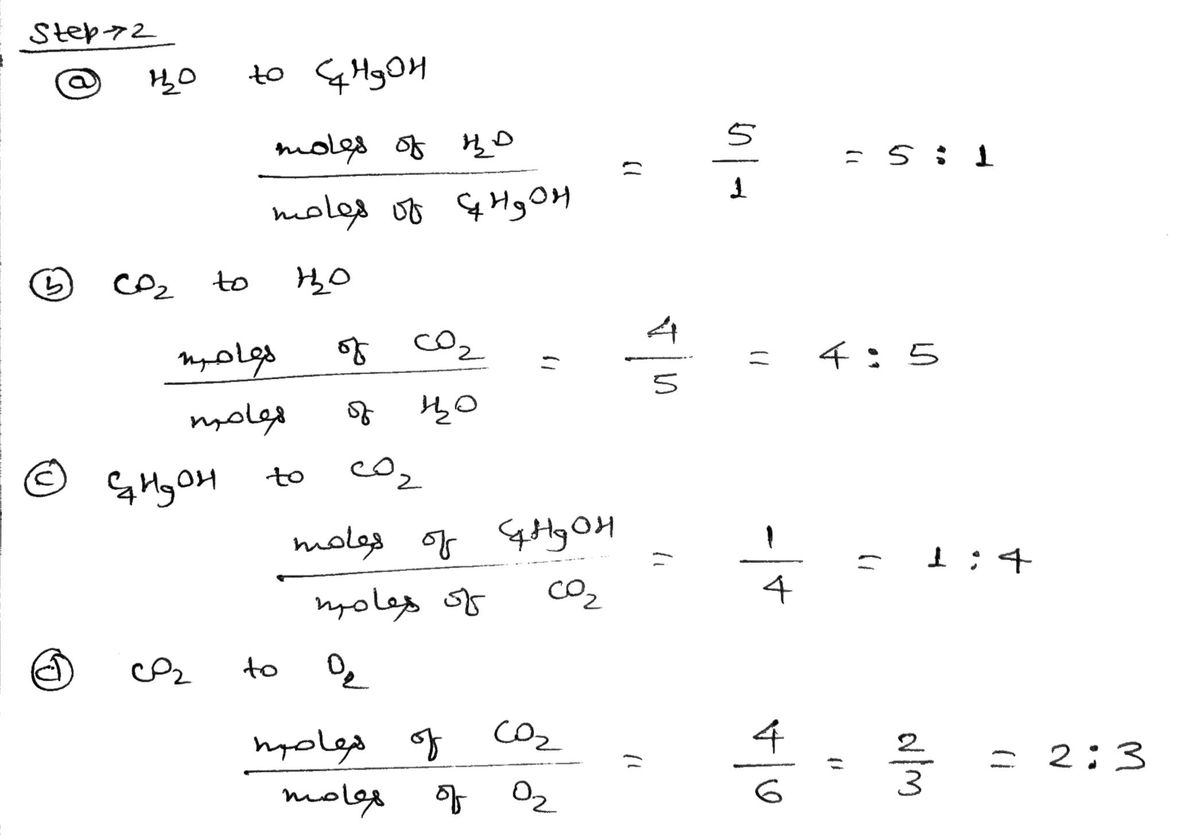 Step→2
(a) H₂O to C₄H₉OH
moles of H₂O / moles of C₄H₉OH = 5/1 = 5 : 1
(b) CO₂ to H₂O
moles of CO₂ / moles of H₂O = 4/5 = 4 : 5
(c) C₄H₉OH to CO₂
moles of C₄H₉OH / moles of CO₂ = 1/4 = 1 : 4
(d) CO₂ to O₂
moles of CO₂ / moles of O₂ = 4/6 = 2/3 = 2 : 3